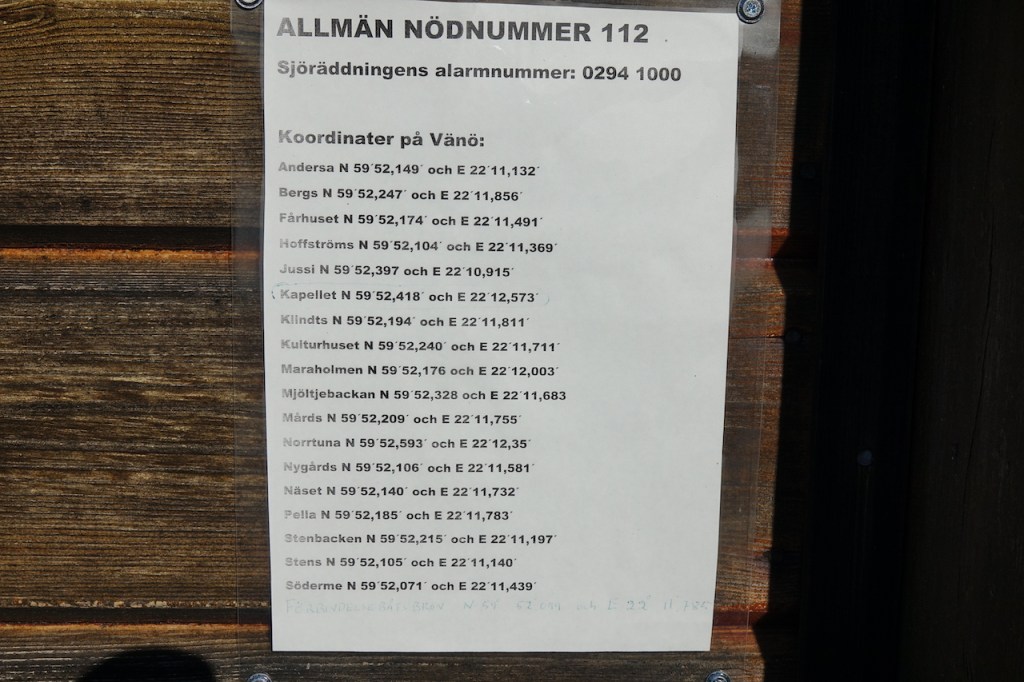 ALLMÄN NÖDNUMMER 112
Sjöräddningens alarmnummer: 0294 1000
Koordinater på Vänö:
Andersa N 59´52,149´ och E 22´11,132´
Bergs N 59´52,247´ och E 22´11,856´
Fårhuset N 59´52,174´ och E 22´11,491´
Hoffströms N 59´52,104´ och E 22´11,369´
Jussi N 59´52,397 och E 22´10,915´
Kapellet N 59´52,418´ och E 22´12,573´
Klindts N 59´52,194´ och E 22´11,811´
Kulturhuset N 59´52,240´ och E 22´11,711´
Maraholmen N 59´52,176 och E 22´12,003´
Mjöltjebackan N 59´52,328 och E 22´11,683
Mårds N 59´52,209´ och E 22´11,755´
Norrtuna N 59´52,593´ och E 22´12,35´
Nygårds N 59´52,106´ och E 22´11,581´
Näset N 59´52,140´ och E 22´11,732´
Pella N 59´52,185´ och E 22´11,783´
Stenbacken N 59´52,215´ och E 22´11,197´
Stens N 59´52,105´ och E 22´11,140´
Söderme N 59´52,071´ och E 22´11,439´
N 59 och E 22